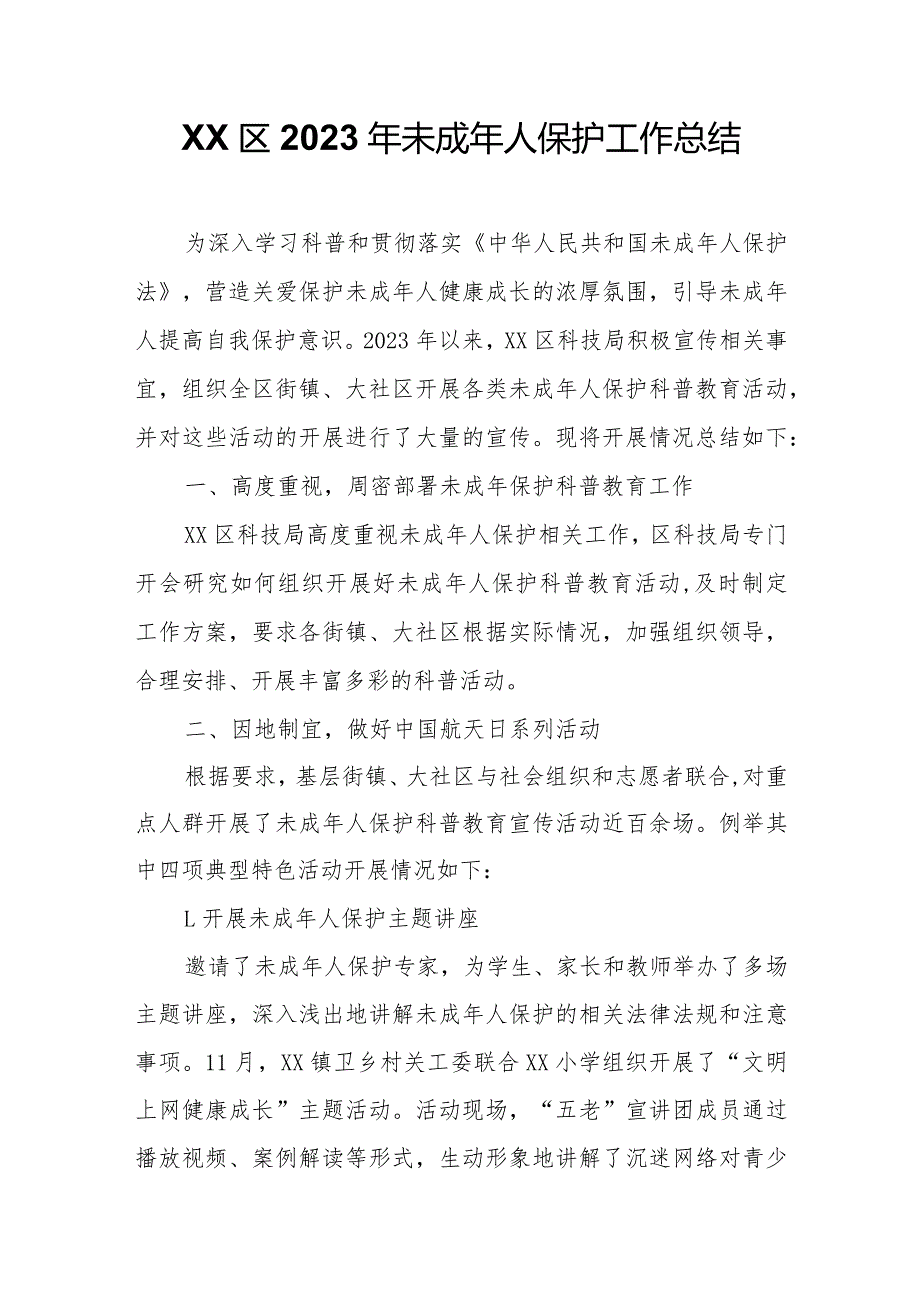 XX区2023年未成年人保护工作总结
为深入学习科普和贯彻落实《中华人民共和国未成年人保护
法》，营造关爱保护未成年人健康成长的浓厚氛围，引导未成年
人提高自我保护意识。2023年以来，XX区科技局积极宣传相关事
宜，组织全区街镇、大社区开展各类未成年人保护科普教育活动，
并对这些活动的开展进行了大量的宣传。现将开展情况总结如下：
一、高度重视，周密部署未成年保护科普教育工作
XX区科技局高度重视未成年人保护相关工作，区科技局专门
开会研究如何组织开展好未成年人保护科普教育活动,及时制定
工作方案，要求各街镇、大社区根据实际情况，加强组织领导，
合理安排、开展丰富多彩的科普活动。
二、因地制宜，做好中国航天日系列活动
根据要求，基层街镇、大社区与社会组织和志愿者联合,对重
点人群开展了未成年人保护科普教育宣传活动近百余场。例举其
中四项典型特色活动开展情况如下：
L开展未成年人保护主题讲座
邀请了未成年人保护专家，为学生、家长和教师举办了多场
主题讲座，深入浅出地讲解未成年人保护的相关法律法规和注意
事项。11月，XX镇卫乡村关工委联合XX小学组织开展了“文明
上网健康成长”主题活动。活动现场，“五老”宣讲团成员通过
播放视频、案例解读等形式，生动形象地讲解了沉迷网络对青少